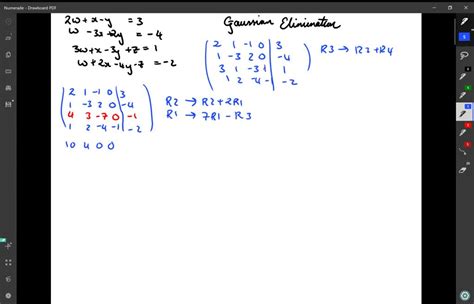 Numerade - Drawboard PDF
2w + x - y = 3
w - 3x + 2y = -4
3w + x - 3y + z = 1
w + 2x - 4y - z = -2
Gaussian Elimination
2 1 -1 0 3
1 -3 2 0 -4
3 1 -3 1 1
1 2 -4 -1 -2
R3 → R3 + R4
2 1 -1 0 3
1 -3 2 0 -4
4 3 -7 0 -1
1 2 -4 -1 -2
R2 → R2 + 2R1
R1 → 7R1 - R3
10 4 0 0